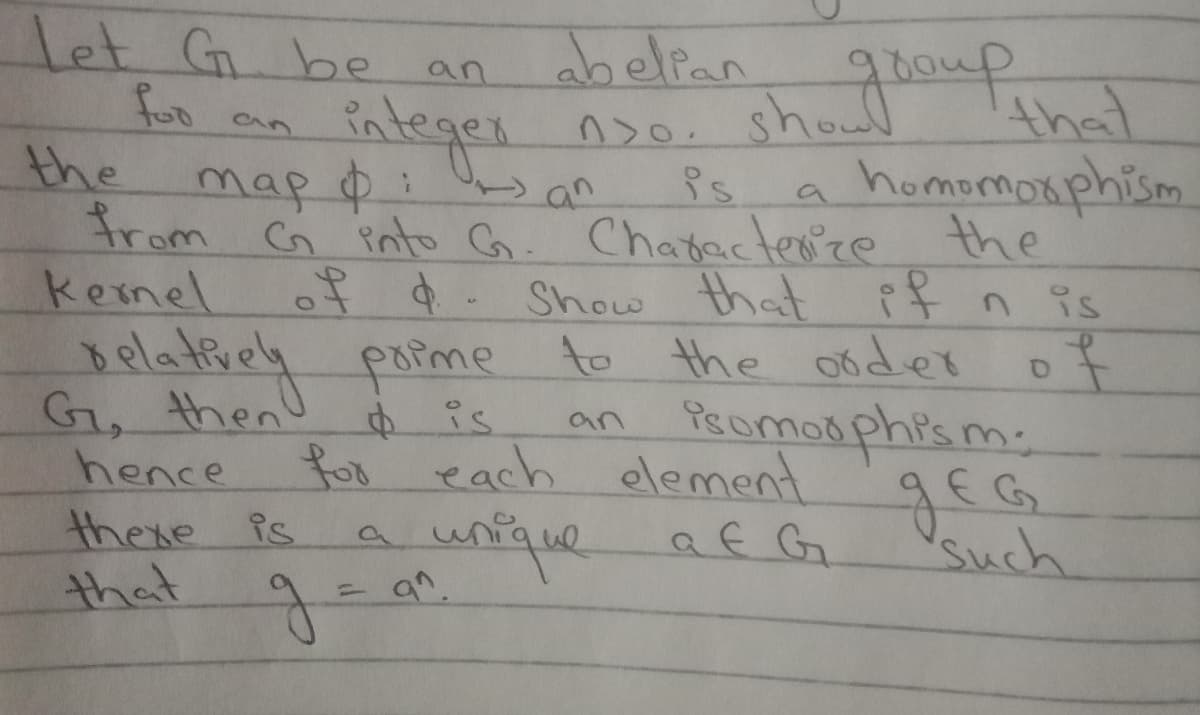 Let G be an abelian group
for an integer n>0. show that
the map ϕ: ↦ an is a homomorphism
from G into G. Characterize the
kernel of ϕ. Show that if n is
relatively prime to the order of
G, then ϕ is an isomorphism;
hence for each element g ∈ G
there is a unique a ∈ G such
that g = aⁿ.